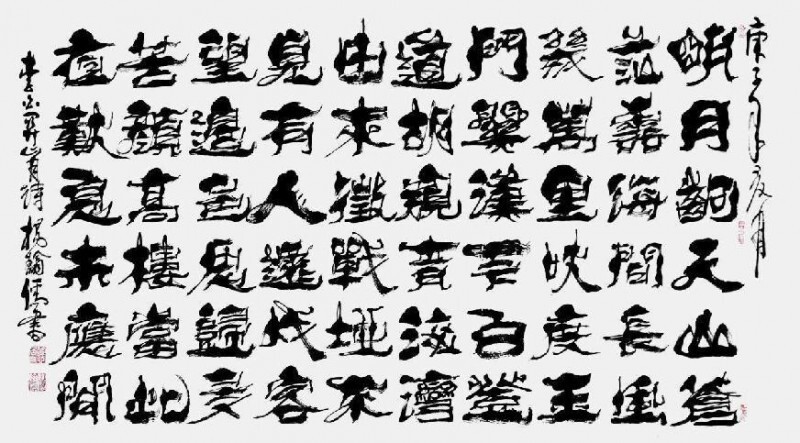 庚子年夏月
明月齣天山蒼
茫雲海間長風
幾萬里吹度玉
門關漢下白登
道胡窺青海灣
由來徵戰地不
見有人還戍客
望邊色思歸多
苦顏高樓當此
夜歎息未應閒
李白關山月詩 楊翰儒書